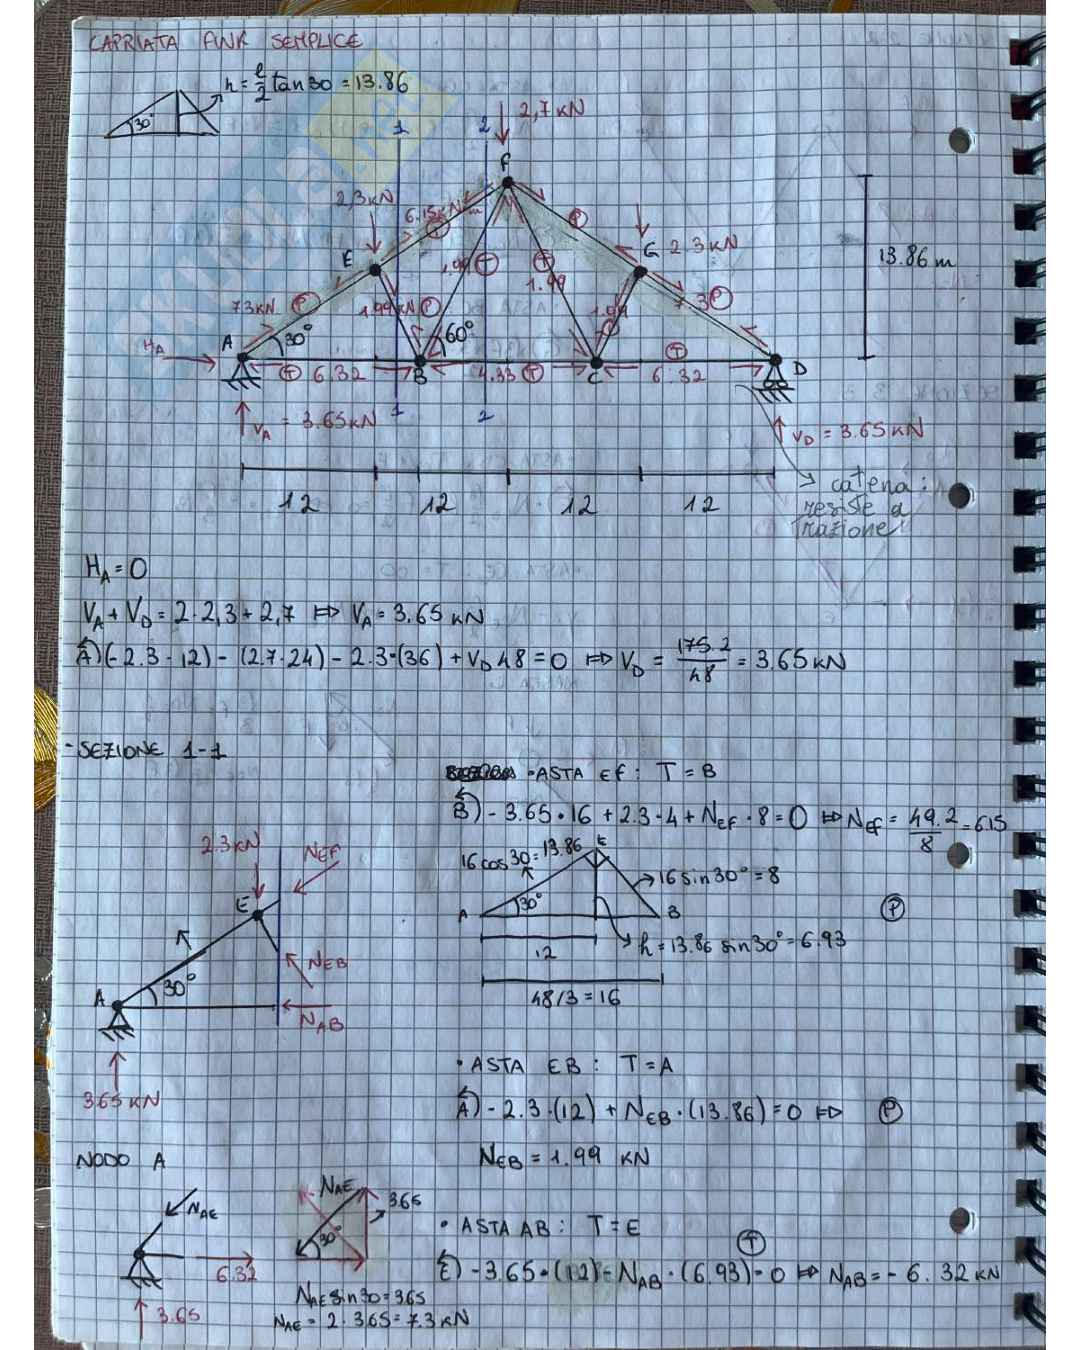 CAPRIATA FINK SEMPLICE
h = l/2 tan30 = 13.86
30°
1
2
2,7 kN
F
2,3 kN
6.15 kN
T
P
E
G 2.3 kN
13.86 m
T
T
1.99
7.3 kN P
1.99 kN P
1.99
7.3 P
HA
A
30°
60°
T
T 6.32
B
4.33 T
C
6.32
D
1
2
VA = 3.65 kN
VD = 3.65 kN
12
12
12
12
catena:
resiste a
trazione!
HA = 0
VA + VD = 2·2,3 + 2,7 ⇨ VA = 3.65 kN
A) (-2.3·12) - (2.7·24) - 2.3·(36) + VD 48 = 0 ⇨ VD = 175.2/48 = 3.65 kN
- SEZIONE 1-1
• ASTA EF: T = B
B) - 3.65·16 + 2.3·4 + NEF·8 = 0 ⇨ NEF = 49.2/8 = 6.15
2.3 kN
NEF
E
NEB
30°
A
NAB
3.65 kN
16 cos30 = 13.86
E
16 sin30° = 8
30°
A
B
P
h = 13.86 sin30° = 6.93
12
48/3 = 16
• ASTA EB: T = A
A) - 2.3·(12) + NEB·(13.86) = 0 ⇨ P
NEB = 1.99 kN
NODO A
NAE
6.32
3.65
NAE
3.65
30°
NAE sin30 = 3.65
NAE = 2·3.65 = 7.3 kN
• ASTA AB: T = E
T
E) - 3.65·(12) - NAB·(6.93) = 0 ⇨ NAB = - 6.32 kN